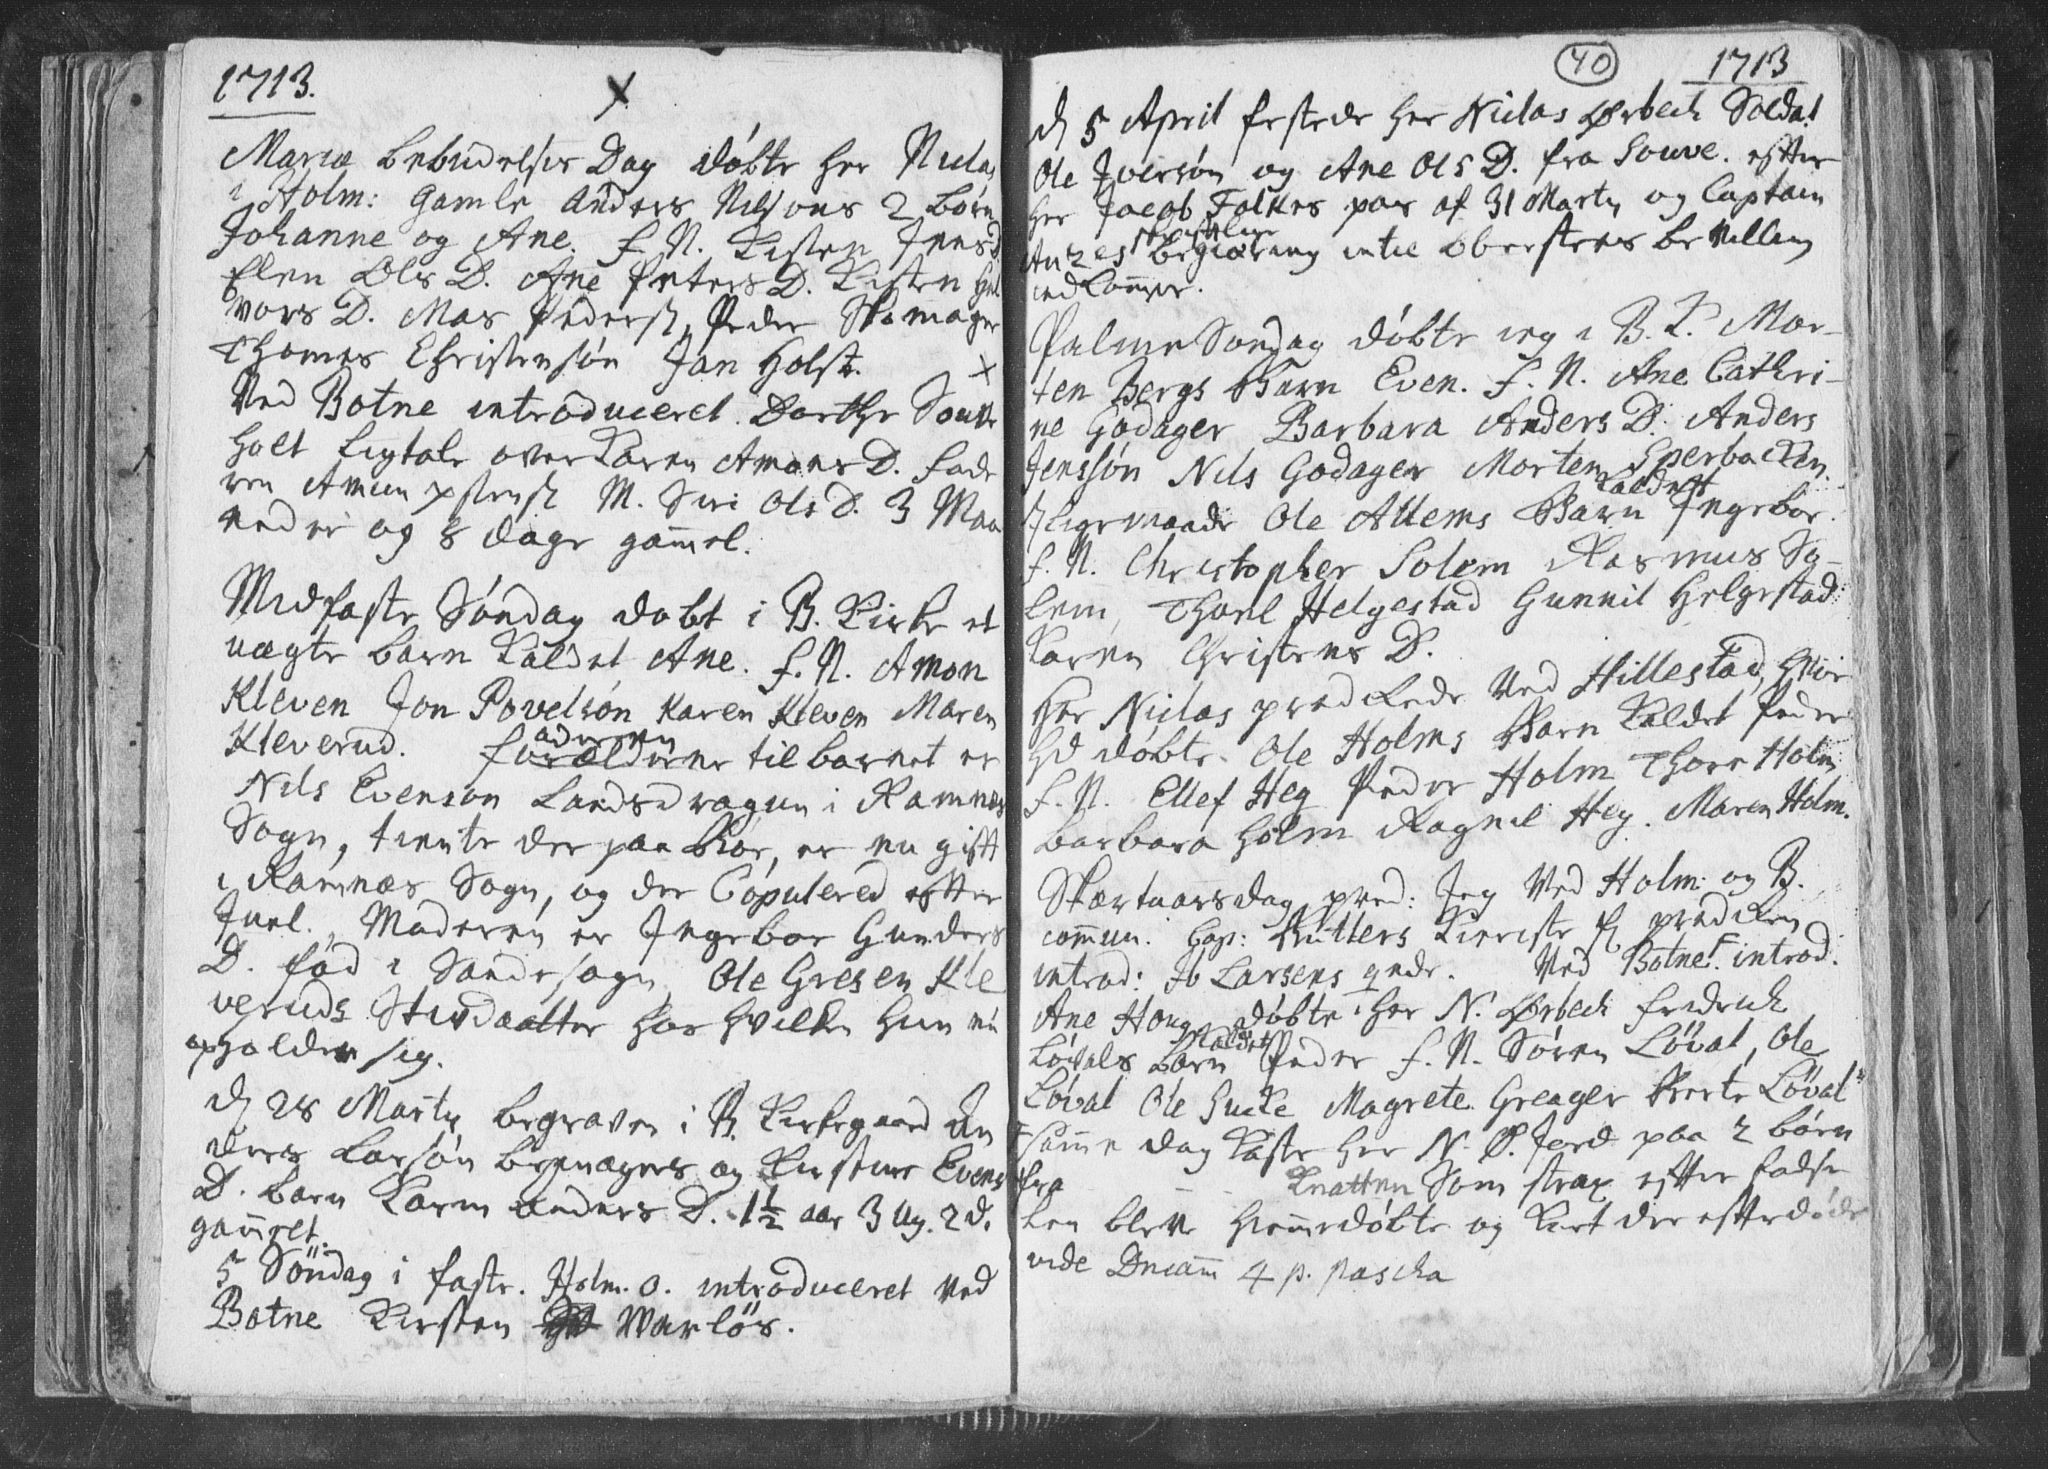 1713.
X
Mariæ bebudelses Dag døbte her Niclas
i Holm: gamle Anders Nilssøns 2 børn
Johanne og Ane. f. N. Kisten Jens D.
Elen Ols D. Ane Peters D. Kisten Hal
vors D. Mas Peders: Peder Skomager
Thomes Christensøn Jan Holst. X
Ved Botne introduceret Dorthe Soue
holt Ligtale over Karen Amons D. fade
ren Amun M. Siri Ols D. 3 Maa
neder og 8 dage gam̄el.
Midfaste Søndag døbt i B. Kirke et
uægte barn Kaldet Ane. f. N. Amon
Kleven Jon Povelsøn Karen Kleven Maren
Kleverud. faderen til barnet er
Nils Evenson Landsdragun i Ramnæs
Sogn, tiente der paa Kior, er nu gift
i Ramnæs Sogn, og der Copulered efter
Juel. Moderen er Ingebor Gunders
D. fød i Sande sogn, Ole Gresen Kle
veruds Stivdaatter hos hvilken hun nu
opholder sig.
d 28 Marty begraven i B. Kirkegaard An
ders Larsøn og Kirstine Evens
D. barn Karen Anders D. 1½ aar 3 Ug. 2 d.
gam̄elt.
5 Søndag i faste. Holm. o. introduceret ved
Botne Kirsten Warløs.
40 1713
d 5 April festede her Niclas Ørbech Soldat
Ole Iversøn og Ane Ols D. fra Souve. efter
her Jacob Falkes pas af 31 Marty og Captain
skriftlige
begiæring intil Oberstens bevilling
indkom̄er.
Palme Søndag døbte ieg i B. K. Mor-
ten Bergs Barn Even. f. N. Ane Cathri-
ne Godager Barbara Anders D. Anders
Jenssøn Nils Godager Morten Sperbacken
Kaldet
ligemaade Ole Allems Barn Ingebor.
f. N. Christopher Solem Rasmus So-
lem, Thorl Helgestad Gunnil Helgestad
Karen Christens D.
Her Niclas predikede Ved Hillestad, hvor
hd døbte. Ole Holms Barn Kaldet Peder
f. N. Ellef Heg Peder Holm Thore Holm
barbara Holm Ragnil Heg. Maren Holm.
Skærtaarsdag pred: Jeg Ved Holm: og B.
com̄un. Cap: Rütters Kiereste f prediken
introd: Ib Larsens qvde. Ved Botne introd:
Ane Houg døbte her N. Ørbech fredrich
Kaldet
Løvals barn Peder f. N. Søren Løval, Ole
Løval Ole hucke Magrete Greager Berte Løval
sam̄e dag kaste her N. Ø. Jord paa 2 børn
fra Knatten Som strax efter fødse
len bleve hiem̄edøbte og kort der efter døde
vide Dn̄icam̄ 4 p. pascha